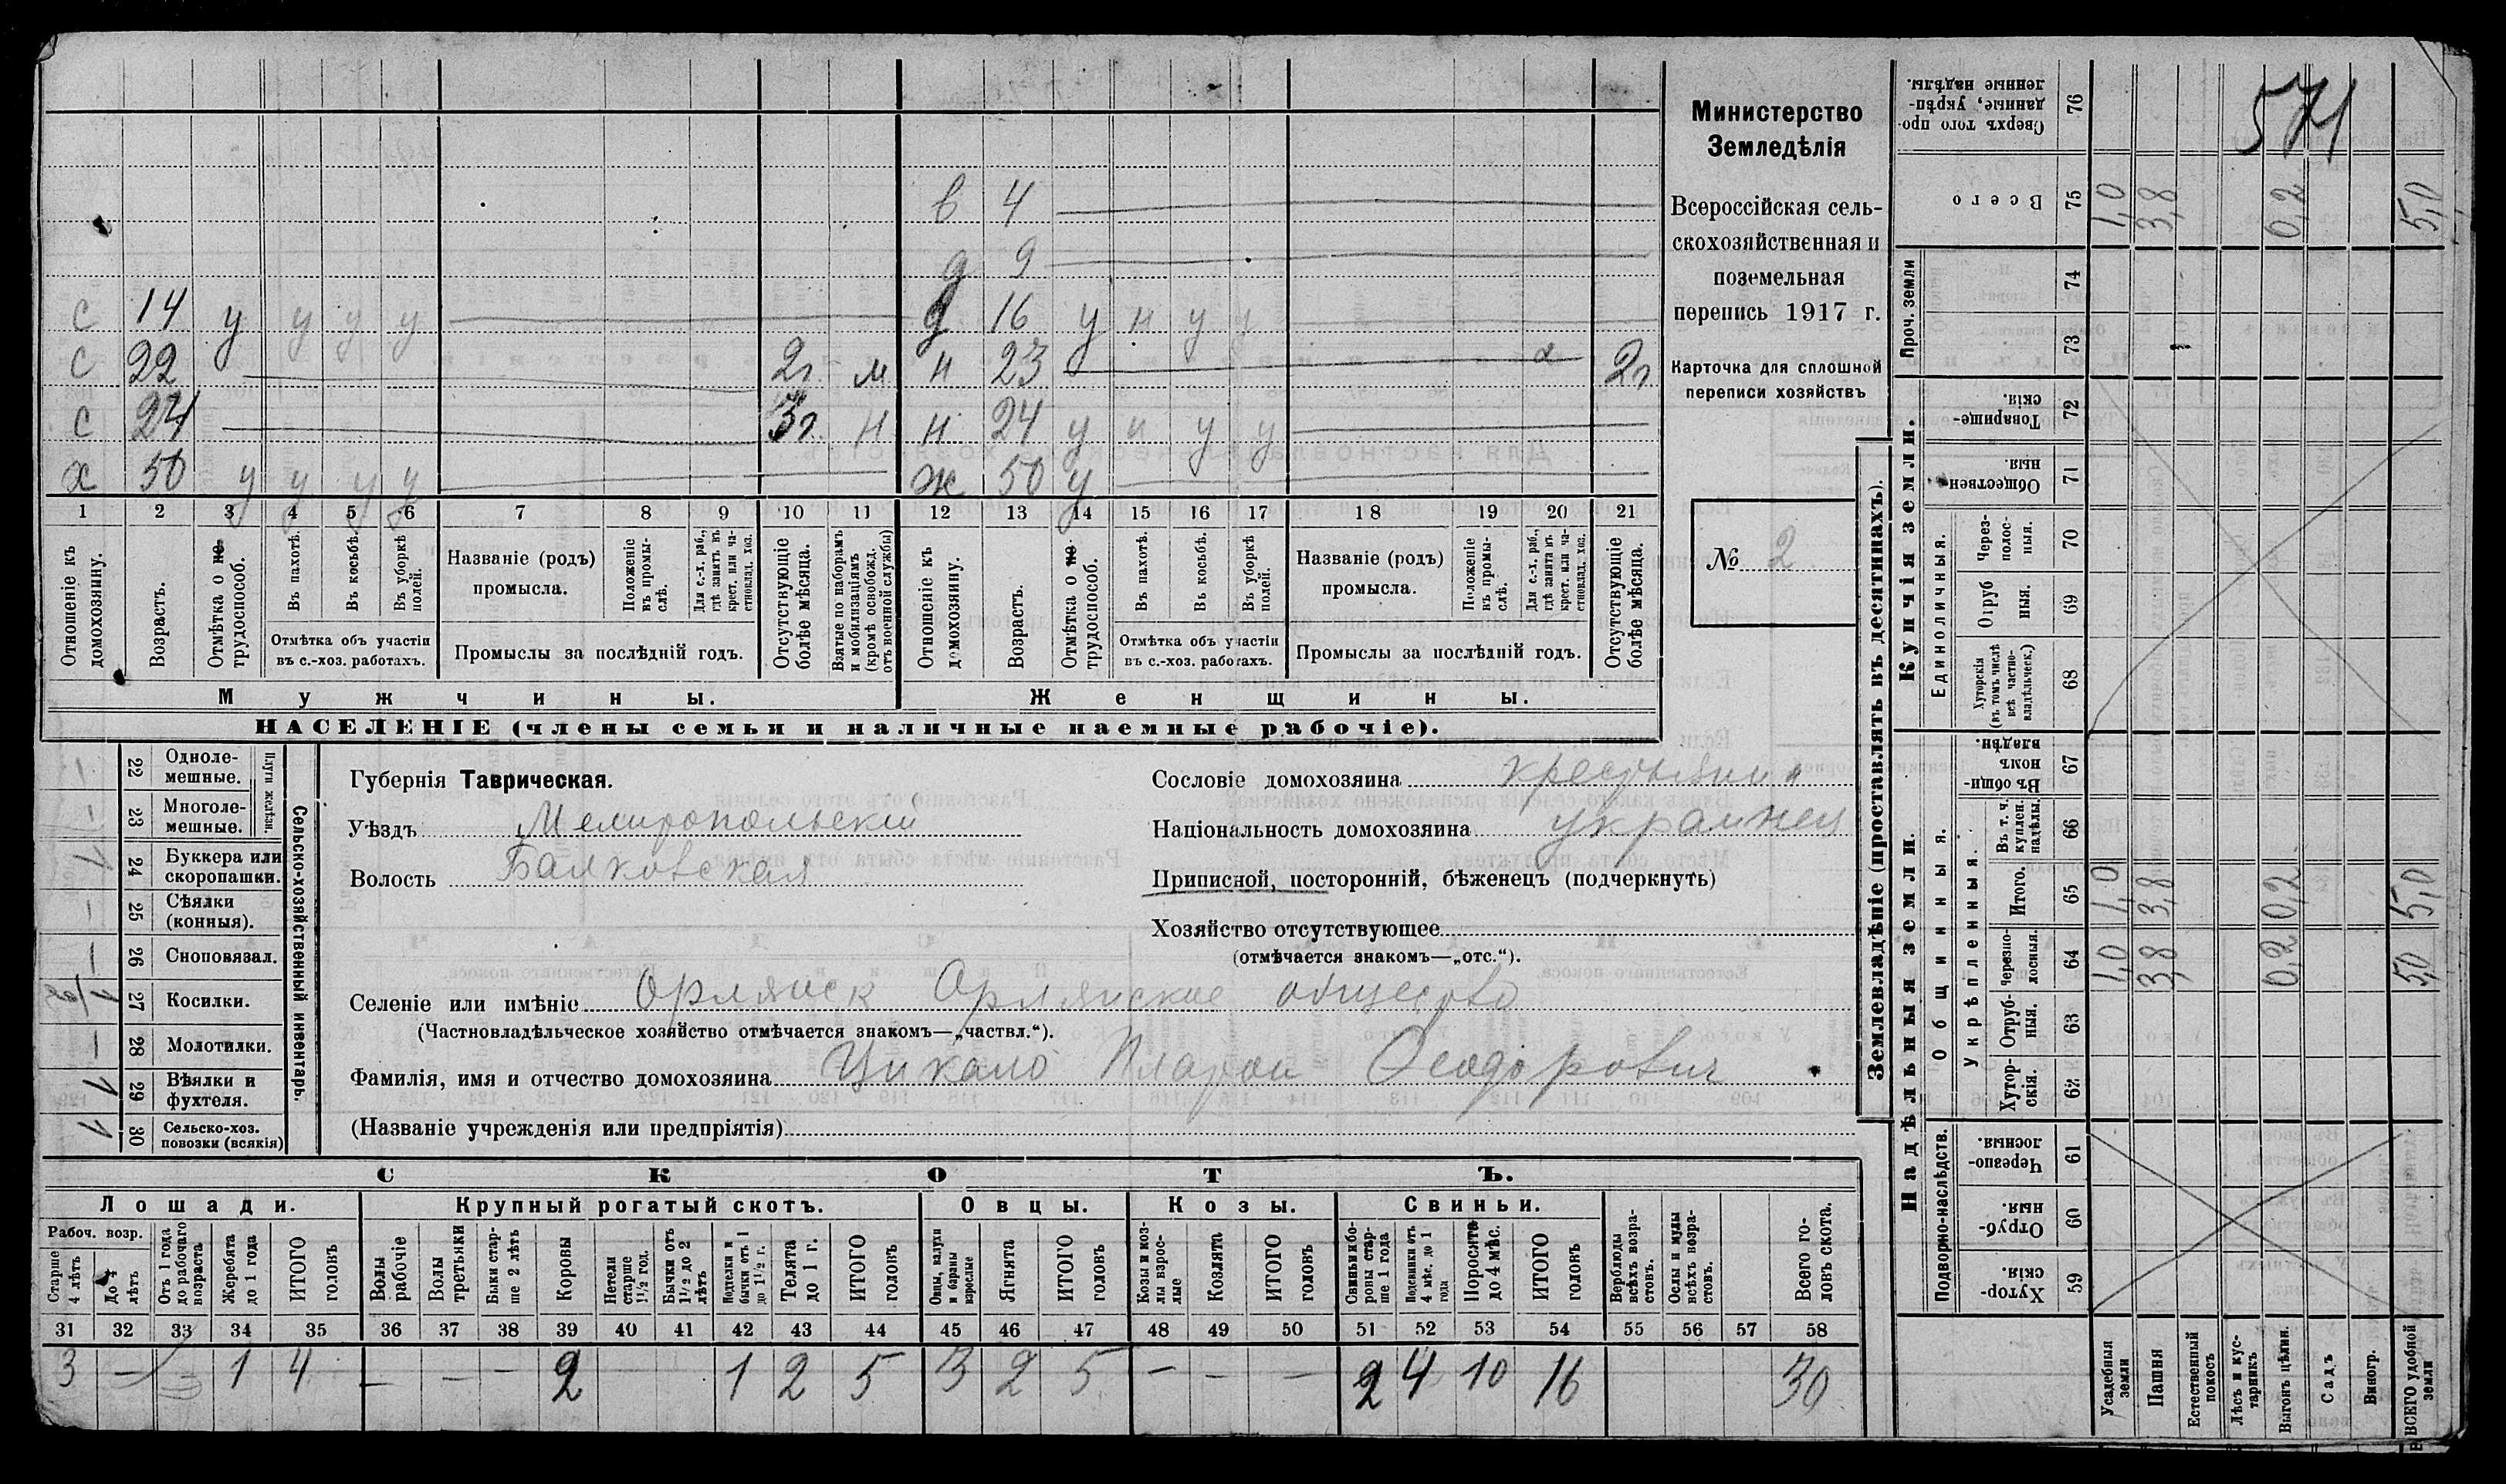 571
Министерство
Земледѣлія
Всероссійская сель-
скохозяйственная и
поземельная
перепись 1917 г.
Карточка для сплошной
переписи хозяйствъ
№ 2
в 4
д 9
с 14 у у у у д 16 у н у у
с 22 2г м н 23 2г
с 24 3г н н 24 у н у у
х 50 у у у у ж 50 у
1 2 3 4 5 6 7 8 9 10 11 12 13 14 15 16 17 18 19 20 21
Отношеніе къ домохозяину.
Возрастъ.
Отмѣтка о не трудоспособ.
Въ пахотѣ.
Въ косьбѣ.
Въ уборкѣ полей.
Отмѣтка объ участіи въ с.-хоз. работахъ.
Названіе (родъ) промысла.
Положеніе въ промы-слѣ.
Для с.-х. раб., гдѣ занятъ въ крест. или ча-стновлад. хоз.
Промыслы за послѣдній годъ.
Отсутствующіе болѣе мѣсяца.
Взятые по наборамъ и мобилизаціямъ (кромѣ освобожд. отъ военной службы)
Отношеніе къ домохозяину.
Возрастъ.
Отмѣтка о не трудоспособ.
Въ пахотѣ.
Въ косьбѣ.
Въ уборкѣ полей.
Отмѣтка объ участіи въ с.-хоз. работахъ.
Названіе (родъ) промысла.
Положеніе въ промы-слѣ.
Для с.-х. раб., гдѣ занята въ крест. или ча-стновлад. хоз.
Промыслы за послѣдній годъ.
Отсутствующіе болѣе мѣсяца.
Мужчины. Женщины.
НАСЕЛЕНІЕ (члены семьи и наличные наемные рабочіе).
Сельско-хозяйственный инвентарь.
Плуги желѣзн.
22 Одноле-мешные. –
23 Многоле-мешные. –
24 Буккера или скоропашки. 1
25 Сѣялки (конныя). –
26 Сноповязал. –
27 Косилки. 1/2
28 Молотилки. –
29 Вѣялки и фухтеля. 1
30 Сельско-хоз. повозки (всякія) 1
Губернія Таврическая.
Уѣздъ Мелитопольскій
Волость Балковская
Сословіе домохозяина крестьянин
Національность домохозяина украинец
Приписной, посторонній, бѣженецъ (подчеркнуть)
Хозяйство отсутствующее
(отмѣчается знакомъ—„отс.“).
Селеніе или имѣніе Орлянск Орлянское общество
(Частновладѣльческое хозяйство отмѣчается знакомъ—„частвл.“).
Фамилія, имя и отчество домохозяина Цикало Платон Феодорович
(Названіе учрежденія или предпріятія)
СКОТЪ.
Лошади. Крупный рогатый скотъ. Овцы. Козы. Свиньи.
Рабоч. возр.
Старше 4 лѣтъ
До 4 лѣтъ
Отъ 1 года до рабочаго возраста
Жеребята до 1 года
ИТОГО головъ
Волы рабочіе
Волы третьяки
Быки стар-ше 2 лѣтъ
Коровы
Нетели старше 1½ год.
Бычки отъ 1½ до 2 лѣтъ
Подтелки и бычки отъ 1 до 1½ г.
Телята до 1 г.
ИТОГО головъ
Овцы, валухи и бараны взрослые
Ягнята
ИТОГО головъ
Козы и коз-лы взрос-лые
Козлята
ИТОГО головъ
Свиньи и бо-ровы стар-ше 1 года
Подсвинки отъ 4 мѣс. до 1 года
Поросята до 4 мѣс.
ИТОГО головъ
Верблюды всѣхъ возра-стовъ.
Ослы и мулы всѣхъ возра-стовъ.
Всего го-ловъ скота.
31 32 33 34 35 36 37 38 39 40 41 42 43 44 45 46 47 48 49 50 51 52 53 54 55 56 57 58
3 – 1 4 – – – 2 1 2 5 3 2 5 – – – 2 4 10 16 30
Землевладѣніе (проставлять въ десятинахъ).
Купчія земли.
Надѣльныя земли.
Сверхъ того про-данные, укрѣп-ленные надѣлы. 76
Всего 75 1,0 3,8 0,2 5,0
Проч. земли 74 73
Товарище-скія. 72
Обществен-ныя. 71
Единоличныя.
Через-полос-ныя. 70
Отруб-ныя. 69
Хуторскія (въ томъ числѣ всѣ частно-владѣльческ.) 68
Общинныя.
Въ общи-номъ владѣн. 67
Укрѣпленныя.
Въ т. ч. куплен. надѣлы. 66
Итого. 65 1,0 3,8 0,2 5,0
Черезпо-лосныя. 64 1,0 3,8 0,2 5,0
Отруб-ныя. 63
Хутор-скія. 62
Подворно-наслѣдств.
Черезпо-лосныя. 61
Отруб-ныя. 60
Хутор-скія. 59
Усадебныя земли
Пашня
Естественный покосъ
Лѣсъ и кус-тарникъ
Выгонъ цѣлин.
Садъ
Виногр.
ВСЕГО удобной земли